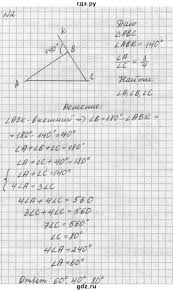 gdz.ru
№2
K
140°
B
A
C
Дано
△ABC
∠ABK = 140°
∠A/∠C = 3/4
Найти
∠A, ∠B, ∠C
Решение:
∠ABK - внешний ⇒ ∠B = 180° - ∠ABK =
= 180° - 140° = 40°
∠A + ∠B + ∠C = 180°
∠A + ∠C + 40° = 180°
{ ∠A + ∠C = 140°
4∠A = 3∠C
4∠A + 4∠C = 560
3∠C + 4∠C = 560
7∠C = 560
∠C = 80°
4∠A = 240°
∠A = 60°
Ответ 60°, 40°, 80°
gdz.ru